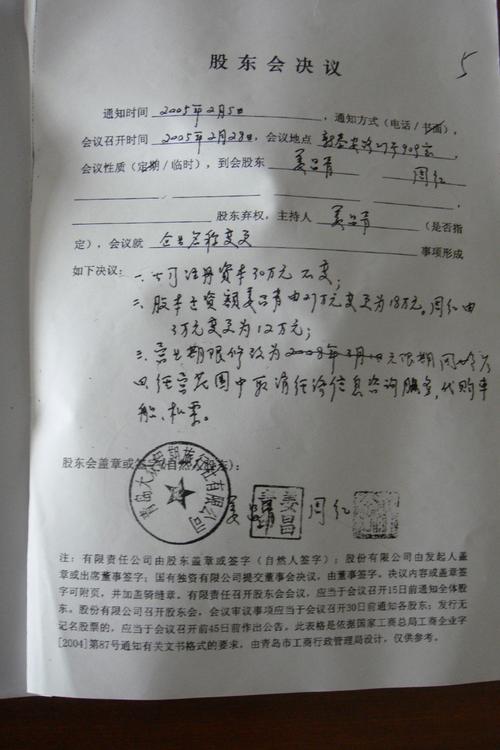 股东会决议
5
通知时间 2005年2月5日，通知方式（电话/书面），
会议召开时间 2005年2月28日，会议地点
会议性质（定期/临时），到会股东 姜昌肖 周红
股东弃权，主持人 姜昌肖（是否指
定），会议就 企业名称变更 事项形成
如下决议： 一、公司注册资本30万元不变；
二、股本出资额姜昌肖由27万元变更为18万元。周红由
3万元变更为12万元；
三、营业期限修改为2008年3月10元限期
四、经营范围中取消经济信息咨询服务，代购车
船、机票。
股东会盖章或签字(自然人股东)：
周红
注：有限责任公司由股东盖章或签字（自然人签字）；股份有限公司由发起人盖
章或出席董事签字；国有独资有限公司提交董事会决议，由董事签字。决议内容或盖章签
字可附页，并加盖骑缝章。有限责任公司召开股东会会议，应当于会议召开15日前通知全体股
东。股份有限公司召开股东会，会议审议事项应当于会议召开30日前通知各股东；发行无
记名股票的，应当于会议召开前45日前作出公告。此表格是依据国家工商总局工商企业字
[2004]第87号通知有关文书格式的要求，由青岛市工商行政管理局设计，仅供参考。